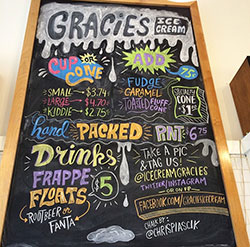 GRACIE'S ICE CREAM
CUP OR CONE
SMALL → $3.74
LARGE → $4.70
KIDDIE → $2.75
ADD 75¢
FUDGE
CARAMEL
TOASTED FLUFF
SPECIALTY CONE $1
hand PACKED PINT $6.75
Drinks
FRAPPE
FLOATS $5
ROOTBEER OR FANTA
TAKE A PIC
& TAG US!
@ICECREAMGRACIES
TWITTER/INSTAGRAM
OR ON FB
FACEBOOK.COM/GRACIESICECREAM
CHALK BY:
@CHRISPIASCIK